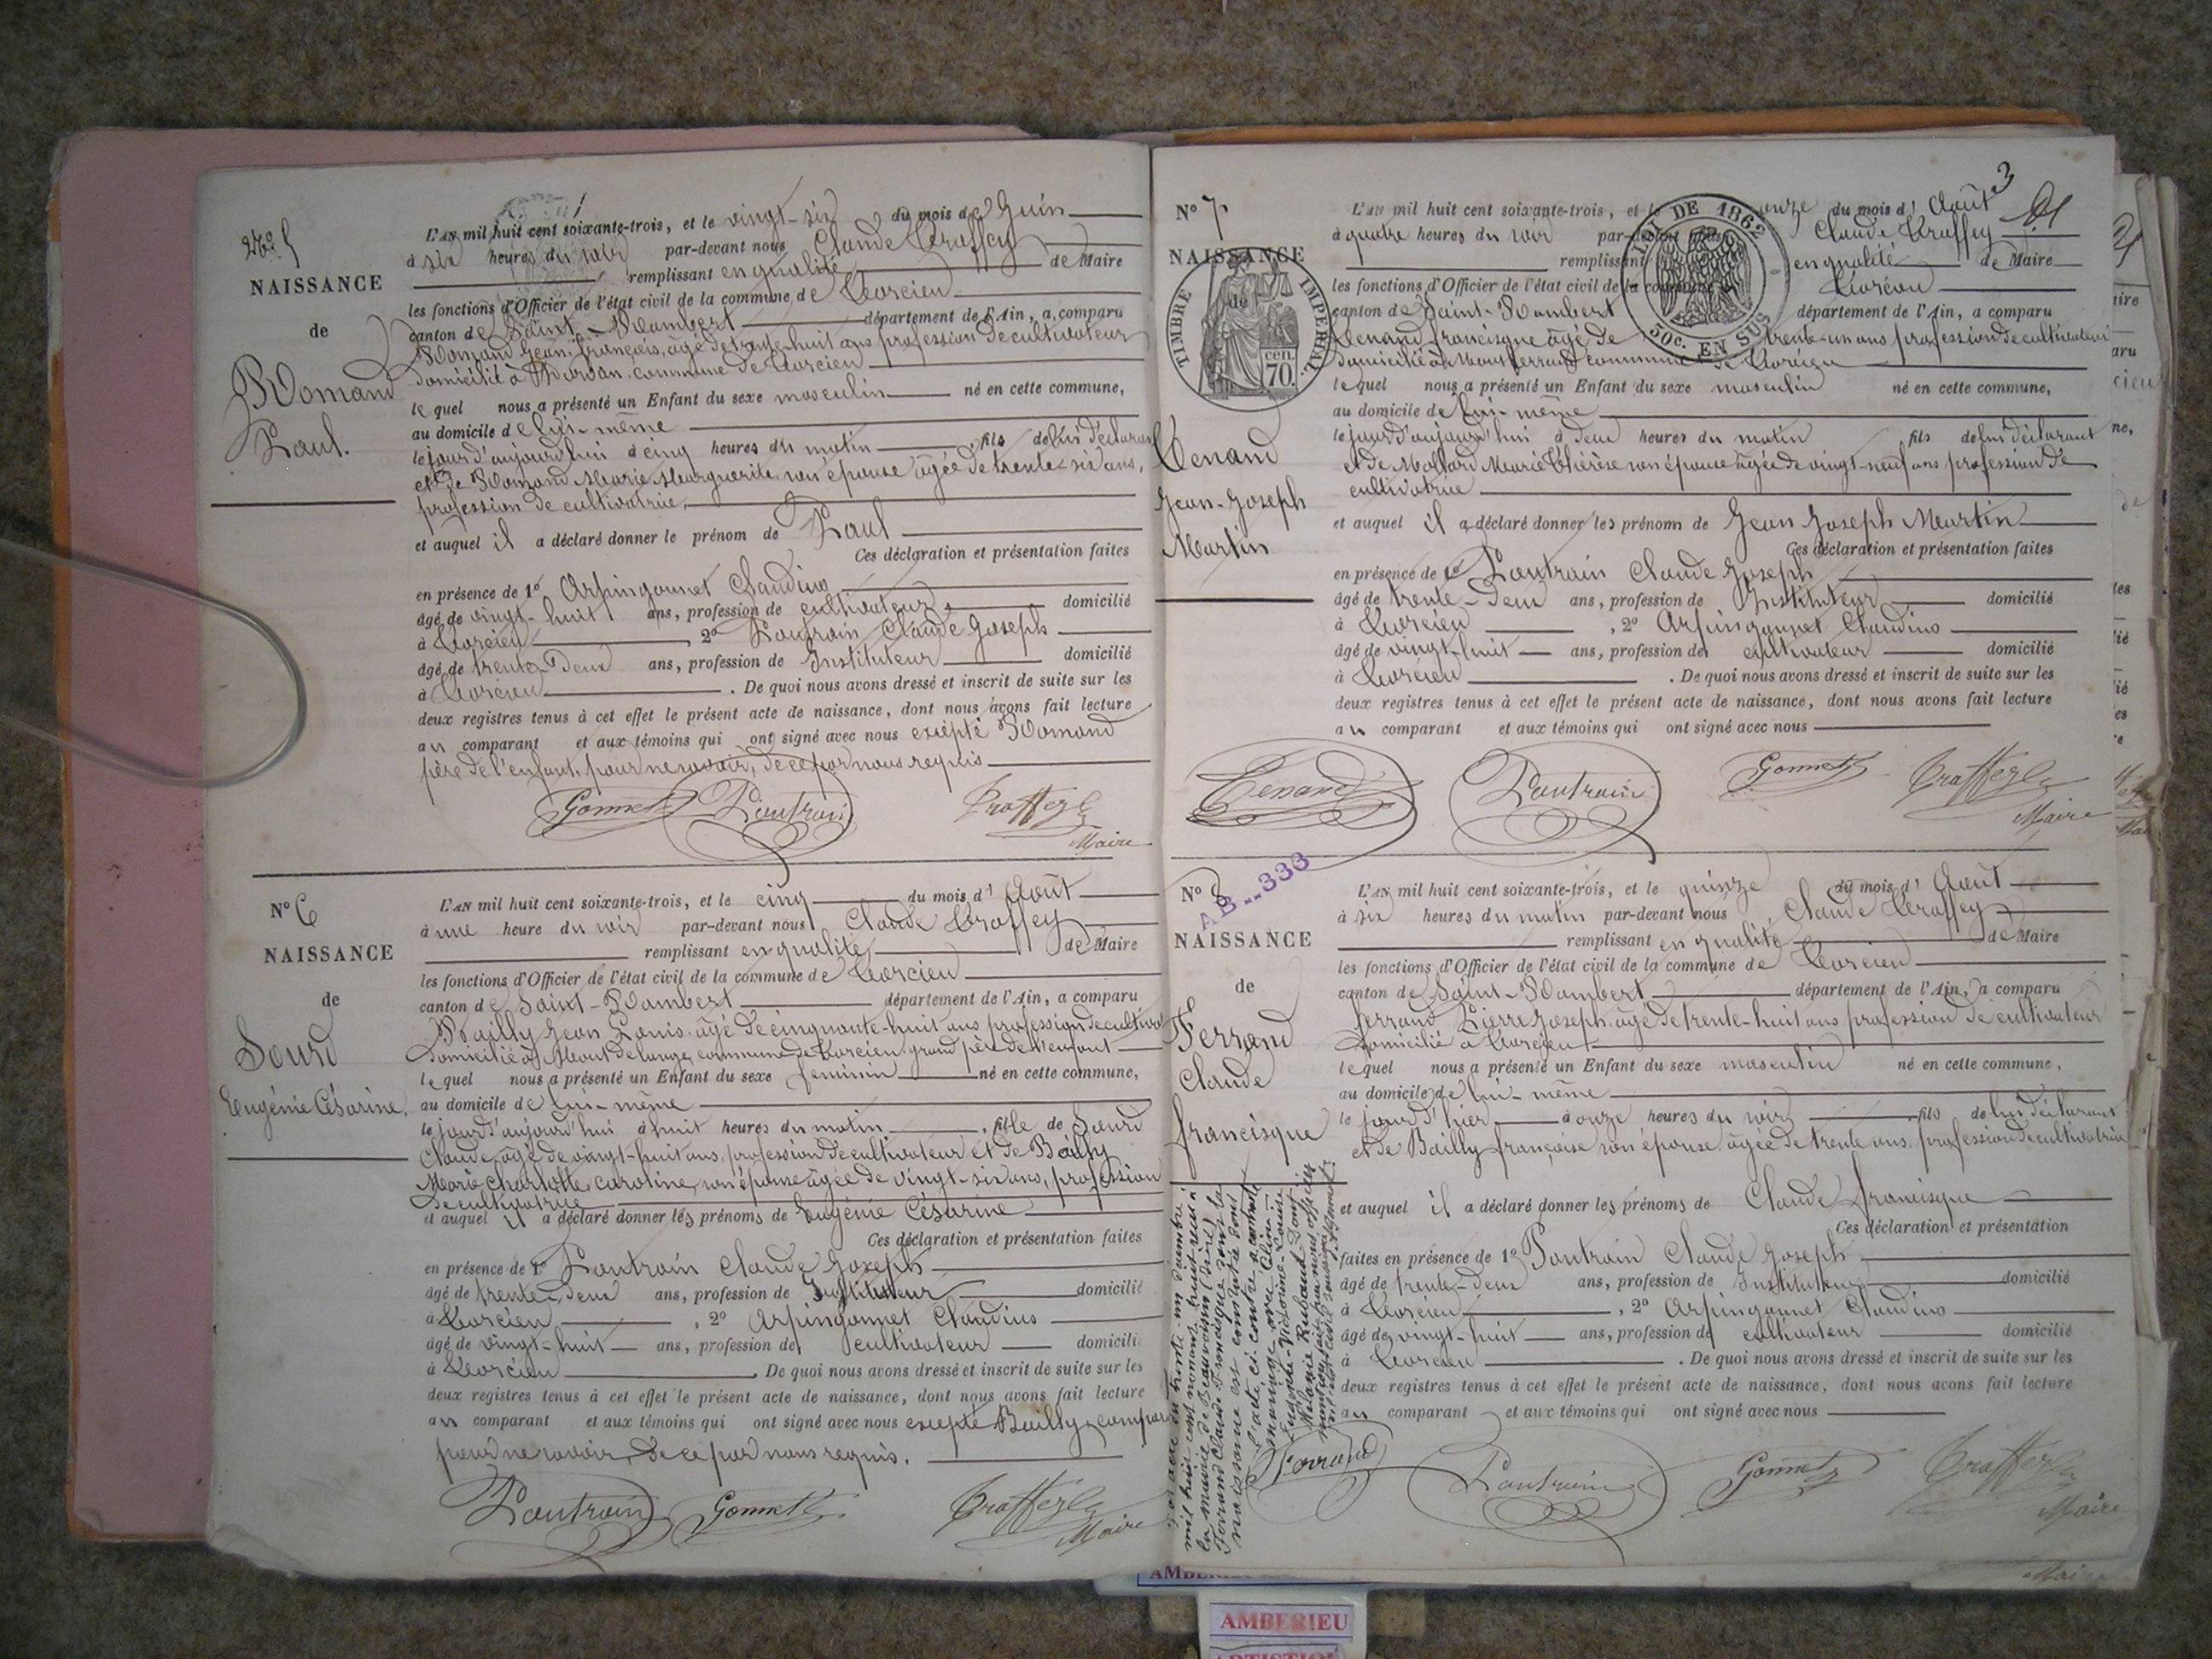 N° 5
NAISSANCE
de
Romand
Paul.
L'AN mil huit cent soixante-trois, et le vingt-six du mois de Juin
à six heures du soir par-devant nous Claude Traffey
remplissant en qualité de Maire
les fonctions d'Officier de l'état civil de la commune de Torcieu
canton de Saint-Rambert département de l'Ain, a comparu
Romand Jean, françois, âgé de trente-huit ans profession de cultivateur
domicilié à commune de Torcieu
lequel nous a présenté un Enfant du sexe masculin né en cette commune,
au domicile de lui-même
le jour d'aujourd'hui à cinq heures du matin fils de lui déclarant
et de Romand Marie Marguerite son épouse âgée de trente-six ans,
profession de cultivatrice
et auquel il a déclaré donner le prénom de Paul
Ces déclaration et présentation faites
en présence de 1° Arpingonnet Claudius
âgé de vingt-huit ans, profession de cultivateur domicilié
à Torcieu, 2° Pautrain Claude Joseph
âgé de trente-deux ans, profession de Instituteur domicilié
à Torcieu. De quoi nous avons dressé et inscrit de suite sur les
deux registres tenus à cet effet le présent acte de naissance, dont nous avons fait lecture
au comparant et aux témoins qui ont signé avec nous excepté Romand
père de l'enfant, pour ne savoir, de ce par nous requis
Gonnet Pautrain Traffey
Maire
N° 6
NAISSANCE
de
Sourd
Eugénie Césarine.
L'AN mil huit cent soixante-trois, et le cinq du mois d'Août
à une heure du soir par-devant nous Claude Traffey
remplissant en qualité de Maire
les fonctions d'Officier de l'état civil de la commune de Torcieu
canton de Saint-Rambert département de l'Ain, a comparu
Bailly Jean Louis âgé de cinquante-huit ans profession de cultivat
domicilié à commune de Torcieu grand père de l'enfant
lequel nous a présenté un Enfant du sexe feminin né en cette commune,
au domicile de lui-même
le jour d'aujourd'hui à huit heures du matin, fille de Sourd
Claude, âgé de vingt-huit ans, profession de cultivateur et de Bailly
Marie Charlotte Caroline, son épouse âgée de vingt-six ans, profession
de cultivatrice
et auquel il a déclaré donner les prénoms de Eugénie Césarine
Ces déclaration et présentation faites
en présence de 1° Pautrain Claude Joseph
âgé de trente-deux ans, profession de Instituteur domicilié
à Torcieu, 2° Arpingonnet Claudius
âgé de vingt-huit ans, profession de cultivateur domicili
à Torcieu. De quoi nous avons dressé et inscrit de suite sur les
deux registres tenus à cet effet le présent acte de naissance, dont nous avons fait lecture
au comparant et aux témoins qui ont signé avec nous excepté Bailly, compar
pour ne savoir, de ce par nous requis.
Pautrain Gonnet Traffey
Maire
N° 7
NAISSANCE
de
TIMBRE IMPERIAL
70 cen.
Tenand
Jean-Joseph
Martin
3
LOI DE 1862
50c. EN SUS
L'AN mil huit cent soixante-trois, et le onze du mois d'Août
à quatre heures du soir par-devant nous Claude Traffey
remplissant en qualité de Maire
les fonctions d'Officier de l'état civil de la commune de Torcieu
canton de Saint-Rambert département de l'Ain, a comparu
Tenand francisque âgé de trente-un ans profession de cultivateur
domicilié à Montferrand commune de Torcieu
lequel nous a présenté un Enfant du sexe masculin né en cette commune,
au domicile de lui-même
le jour d'aujourd'hui à deux heures du matin fils de lui déclarant
et de Mollard Marie Thérèse son épouse âgée de vingt-neuf ans profession de
cultivatrice
et auquel il a déclaré donner les prénoms de Jean Joseph Martin
Ces déclaration et présentation faites
en présence de 1° Pautrain Claude Joseph
âgé de trente-deux ans, profession de Instituteur domicilié
à Torcieu, 2° Arpingonnet Claudius
âgé de vingt-huit ans, profession de cultivateur domicilié
à Torcieu. De quoi nous avons dressé et inscrit de suite sur les
deux registres tenus à cet effet le présent acte de naissance, dont nous avons fait lecture
au comparant et aux témoins qui ont signé avec nous
Tenand Pautrain Gonnet Traffey
Maire
N° 8
AB..333
NAISSANCE
de
Ferrand
Claude
francisque
L'AN mil huit cent soixante-trois, et le quinze du mois d'Août
à six heures du matin par-devant nous Claude Traffey
remplissant en qualité de Maire
les fonctions d'Officier de l'état civil de la commune de Torcieu
canton de Saint-Rambert département de l'Ain, a comparu
ferrand Pierre Joseph âgé de trente-huit ans profession de cultivateur
domicilié à Torcieu
lequel nous a présenté un Enfant du sexe masculin né en cette commune,
au domicile de lui-même
le jour d'hier à onze heures du soir fils de lui déclarant
et de Bailly françoise son épouse âgée de trente ans, profession de cultivatrice
et auquel il a déclaré donner les prénoms de Claude francisque
Ces déclaration et présentation
faites en présence de 1° Pautrain Claude Joseph
âgé de trente-deux ans, profession de Instituteur domicilié
à Torcieu, 2° Arpingonnet Claudius
âgé de vingt-huit ans, profession de cultivateur domicilié
à Torcieu. De quoi nous avons dressé et inscrit de suite sur les
deux registres tenus à cet effet le présent acte de naissance, dont nous avons fait lecture
au comparant et aux témoins qui ont signé avec nous
Ferrand Pautrain Gonnet Traffey
Maire
Par acte du trente un décembre
mil huit cent nonante huit reçu à
la mairie de Beauvoisin
Ferrand Claude Francisque dont la
naissance est constatée dans
l'acte ci-contre a contracté
mariage avec
Eugénie-Victorine-Louise
Mélanie Rubaud Dont
mention faite par nous officier
AMBERIEU